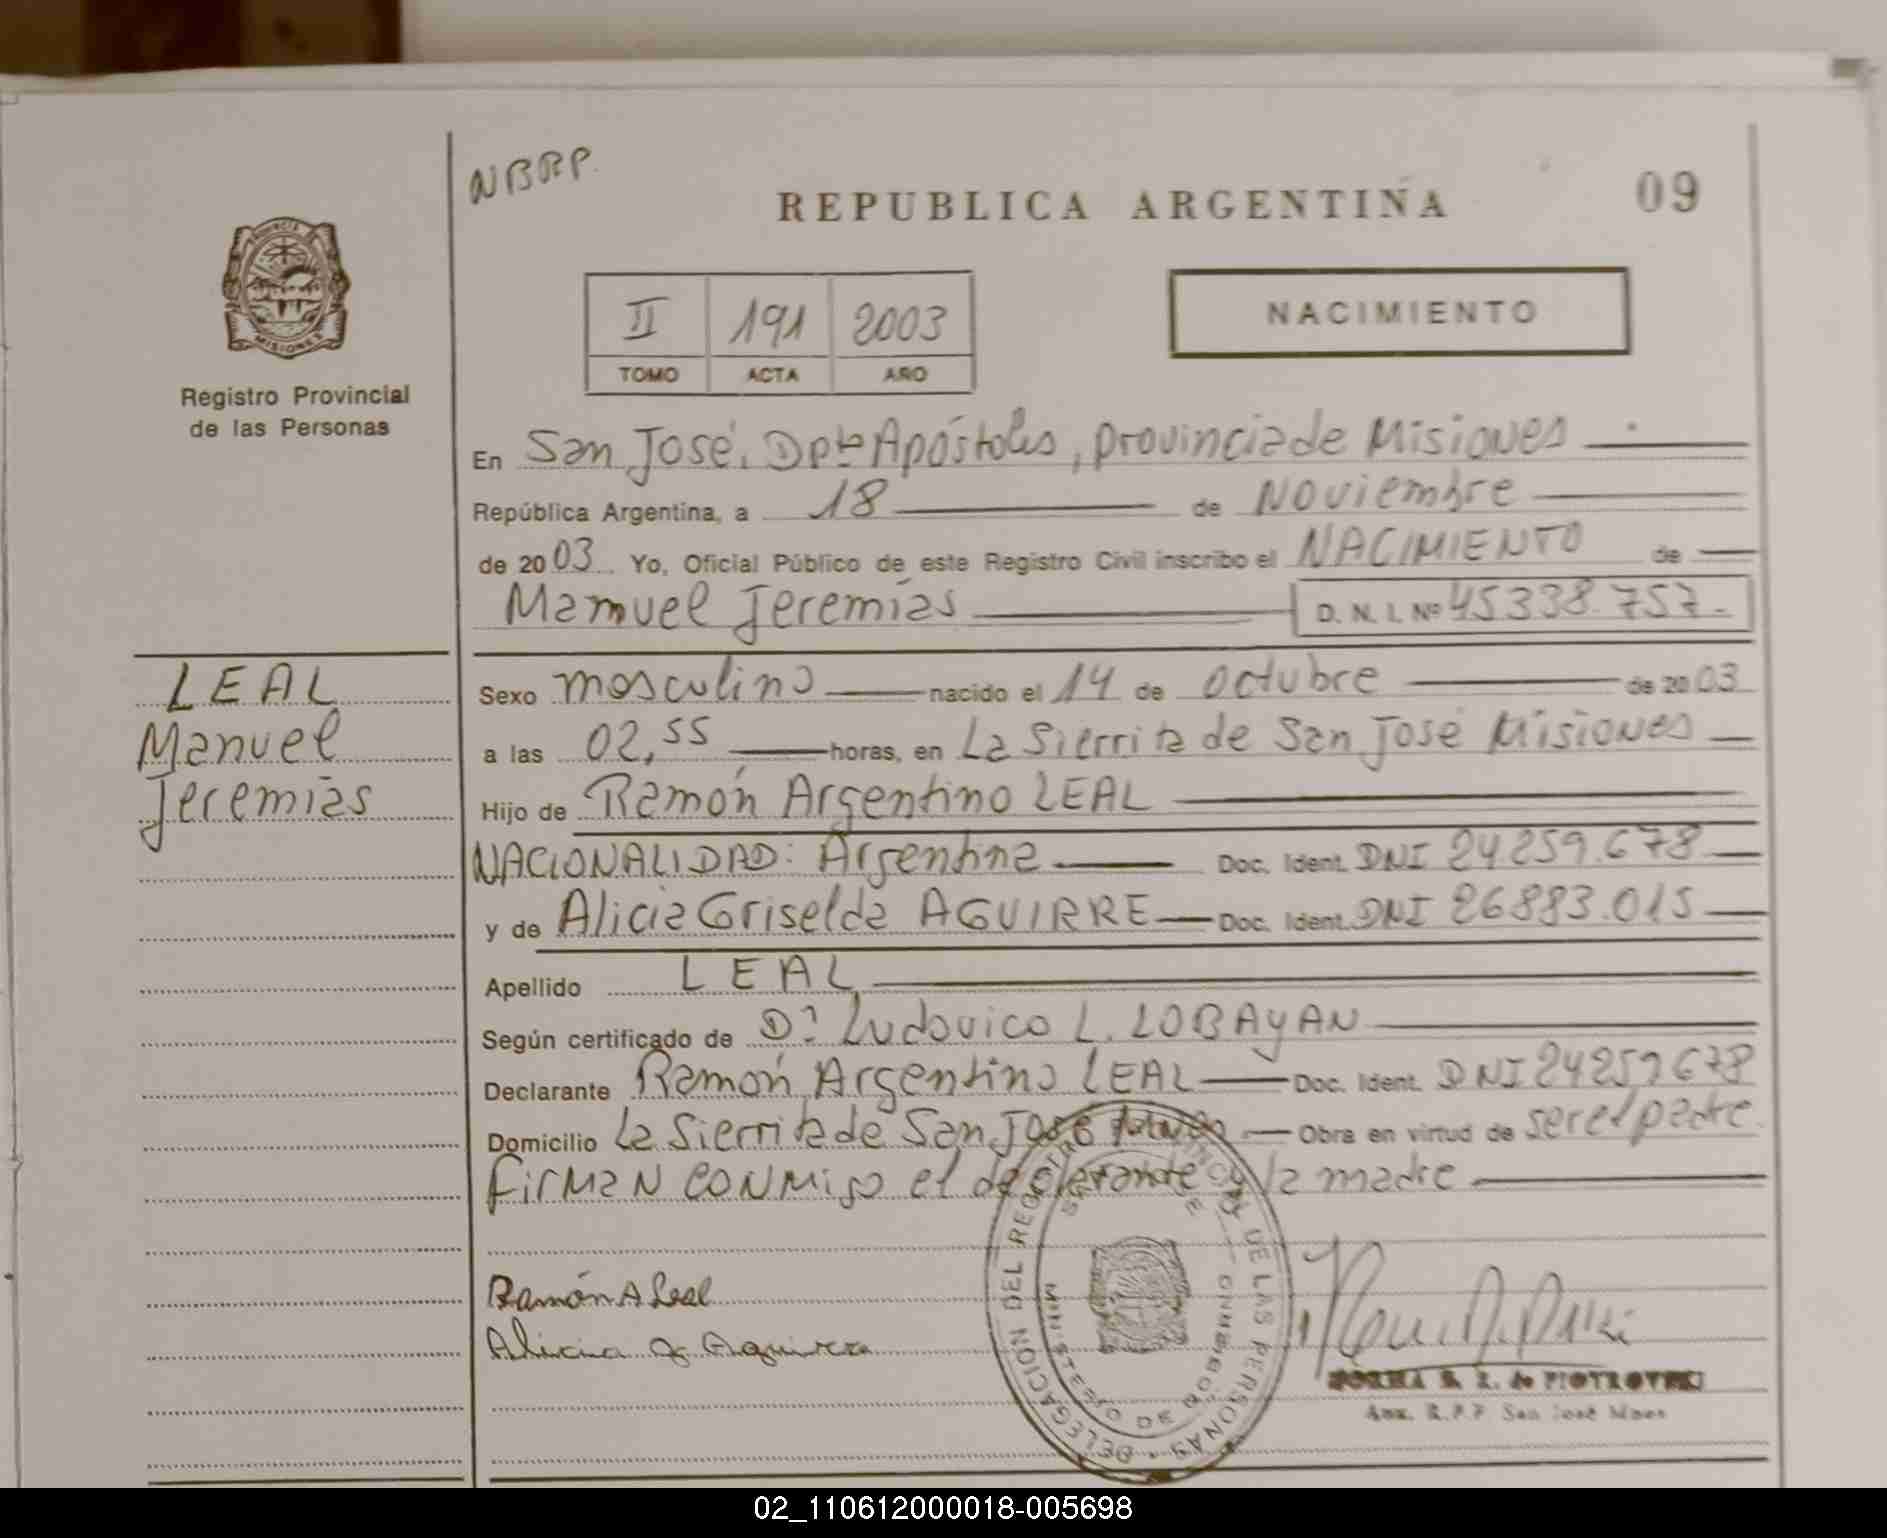 NBRP.
REPUBLICA ARGENTINA
09
PROVINCIA
MISIONES
Registro Provincial
de las Personas
II 191 2003
TOMO ACTA AÑO
NACIMIENTO
En San José, Dpto Apóstoles, provincia de Misiones
República Argentina, a 18 de Noviembre
de 2003 Yo, Oficial Público de este Registro Civil inscribo el NACIMIENTO de
Manuel Jeremías D. N. I. Nº 45338.757-
LEAL
Manuel
Jeremías
Sexo masculino nacido el 14 de octubre de 2003
a las 02,55 horas, en La Sierrita de San José Misiones
Hijo de Ramón Argentino LEAL
NACIONALIDAD: Argentina Doc. Ident. DNI 24.259.678
y de Alicia Griselda AGUIRRE Doc. Ident. DNI 26883.015
Apellido LEAL
Según certificado de Dr. Ludovico L. LOBAYAN
Declarante Ramón Argentino LEAL Doc. Ident. DNI 24259678
Domicilio La Sierrita de San José Obra en virtud de ser el padre.
Firman conmigo el declarante y la madre
Ramón A Leal
Alicia G Aguirre
DELEGACION DEL REGISTRO PROVINCIAL DE LAS PERSONAS
NORMA de PIOTROVSKI
Aux. R.P.P San José Mnes
02_110612000018-005698